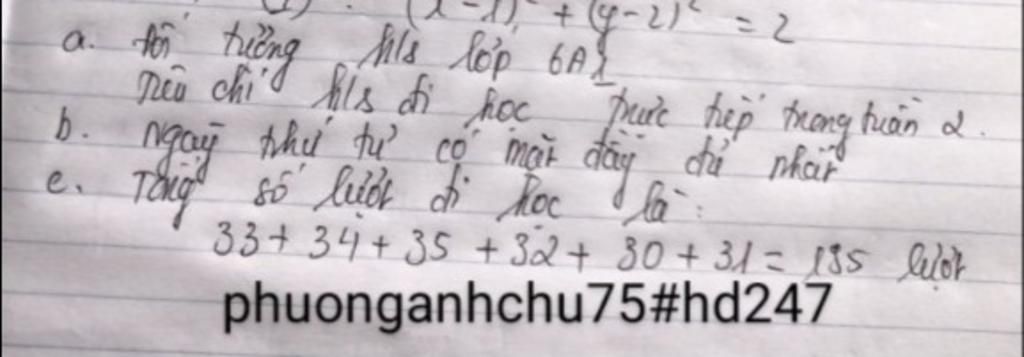 (x-1)² + (y-2)² = 2
a. đối tường h/s lớp 6A1
Tiêu chí h/s đi học trực tiếp trong tuần 2.
b. Ngày thứ tư có mặt đầy đủ nhất
c. Tổng số lượt đi học là:
33 + 34 + 35 + 32 + 30 + 31 = 195 lượt
phuonganhchu75#hd247